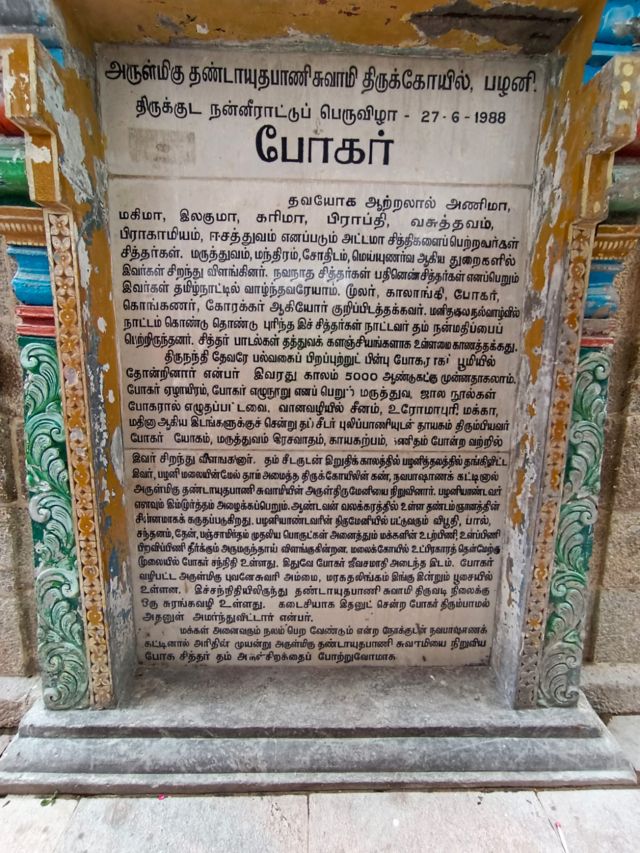 அருள்மிகு தண்டாயுதபாணி சுவாமி திருக்கோயில், பழனி.
திருக்குட நன்னீராட்டுப் பெருவிழா - 27-6-1988
போகர்
தவயோக ஆற்றலால் அணிமா,
மகிமா, இலகுமா, கரிமா, பிராப்தி, வசுத்தவம்,
பிராகாமியம், ஈசத்துவம் எனப்படும் அட்டமா சித்திகளைப்பெற்றவர்கள்
சித்தர்கள். மருத்துவம், மந்திரம், சோதிடம், மெய்யுணர்வு ஆகிய துறைகளில்
இவர்கள் சிறந்து விளங்கினர். நவநாத சித்தர்கள் பதினெண்சித்தர்கள் எனப்பெறும்
இவர்கள் தமிழ்நாட்டில் வாழ்ந்தவரேயாம். மூலர், காலாங்கி, போகர்,
கொங்கணர், கோரக்கர் ஆகியோர் குறிப்பிடத்தக்கவர். மனிதகுலநல்வாழ்வில்
நாட்டம் கொண்டு தொண்டு புரிந்த இச் சித்தர்கள் நாட்டவர் தம் நன்மதிப்பைப்
பெற்றிருந்தனர். சித்தர் பாடல்கள் தத்துவக் களஞ்சியங்களாக காணத்தக்கது.
திருநந்தி தேவரே பல்வகைப் பிறப்புற்றுப் பின்பு போகராகப் பூமியில்
தோன்றினார் என்பர் இவரது காலம் 5000 ஆண்டுகட்கு முன்னதாகலாம்.
போகர் ஏழாயிரம், போகர் எழுநூறு எனப் பெறும் மருத்துவ, ஜால நூல்கள்
போகரால் எழுதப்பட்டவை. வானவழியில் சீனம், உரோமாபுரி, மக்கா,
மதினா ஆகிய இடங்களுக்குச் சென்று தம் சீடர் புலிப்பாணியுடன் தாயகம் திரும்பியவர்
போகர் யோகம், மருத்துவம் இரசவாதம், காயகற்பம், கணிதம் போன்ற வற்றில்
இவர் சிறந்து விளங்கினார். தம் சீடருடன் இறுதிக்காலத்தில் பழனித்தலத்தில் தங்கிவிட்ட
இவர், பழனி மலையின்மேல் தாம் அமைத்த திருக்கோயிலின் கண், நவபாஷாணக் கட்டினால்
அருள்மிகு தண்டாயுதபாணி சுவாமியின் அருள்திருமேனியை நிறுவினார். பழனியாண்டவர்
எனவும் இம்மூர்த்தம் அழைக்கப்படும். ஆண்டவன் வலக்கரத்தில் உள்ள தண்டம்ஞானத்தின்
சின்னமாகக் கருதப்படுகிறது. பழனியாண்டவரின் திருமேனியில் பட்டுவரும் விபூதி, பால்,
சந்தனம், தேன், பஞ்சாமிர்தம் முதலிய பொருட்கள் அனைத்தும் மக்களின் உடற்பிணி, உளப்பிணி
பிறவிப்பிணி தீர்க்கும் அருமருந்தாய் விளங்குகின்றன. மலைக்கோயில் உட்பிரகாரத் தென்மேற்கு
மூலையில் போகர் சந்நிதி உள்ளது. இதுவே போகர் ஜீவசமாதி அடைந்த இடம். போகர்
வழிபட்ட அருள்மிகு புவனேசுவரி அம்மை, மரகதலிங்கம் இங்கு இன்றும் பூசையில்
உள்ளன. இச்சந்நிதியிலிருந்து தண்டாயுதபாணி சுவாமி திருவடி நிலைக்கு
ஒரு சுரங்கவழி உள்ளது. கடைசியாக இதனுட் சென்ற போகர் திரும்பாமல்
அதனுள் அமர்ந்துவிட்டார் என்பர்.
மக்கள் அனைவரும் நலம் பெற வேண்டும் என்ற நோக்குடன் நவபாஷாணக்
கட்டினால் அரிதின் முயன்று அருள்மிகு தண்டாயுதபாணி சுவாமியை நிறுவிய
போக சித்தர் தம் அருள்சிறக்தைப் போற்றுவோமாக